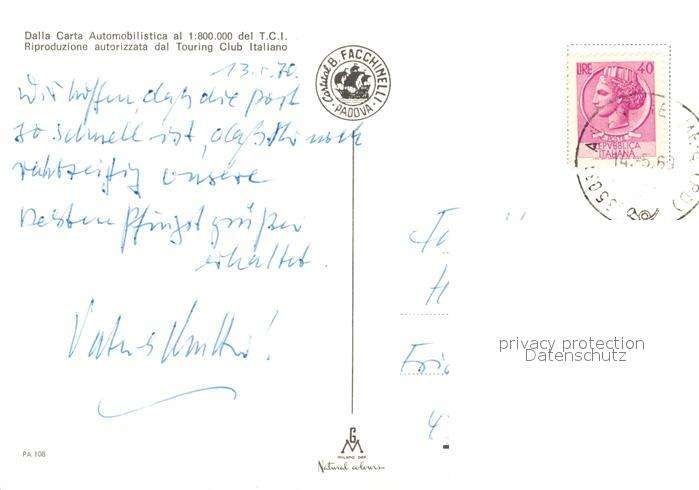 Dalla Carta Automobilistica al 1:800.000 del T.C.I.
Riproduzione autorizzata dal Touring Club Italiano
Cartocol B. FACCHINELLI
PADOVA
LIRE 40
REPVBBLICA
ITALIANA
14.-5.69
3501
Wir hoffen, daß die Post
so schnell ist, daß Ihr noch
rechtzeitig unsere
besten Pfingstgrüße
erhaltet.
Vater & Mutter!
privacy protection
Datenschutz
PA 108
Natural colours